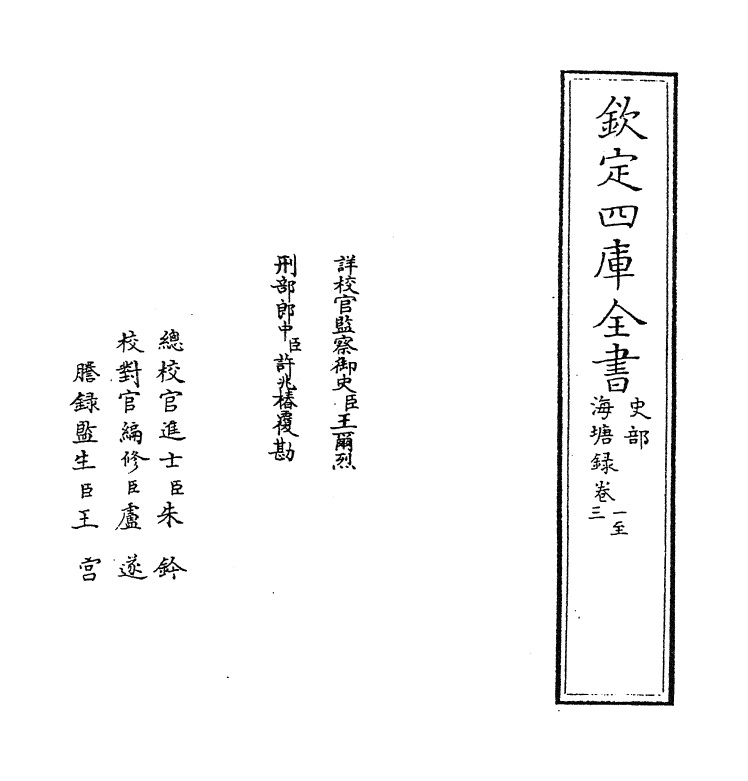 欽定四庫全書
史部
海塘録卷一至三
詳校官監察御史臣王爾烈
刑部郎中臣許兆椿覆勘
總校官進士臣朱鈐
校對官編修臣盧遂
謄録監生臣王宫